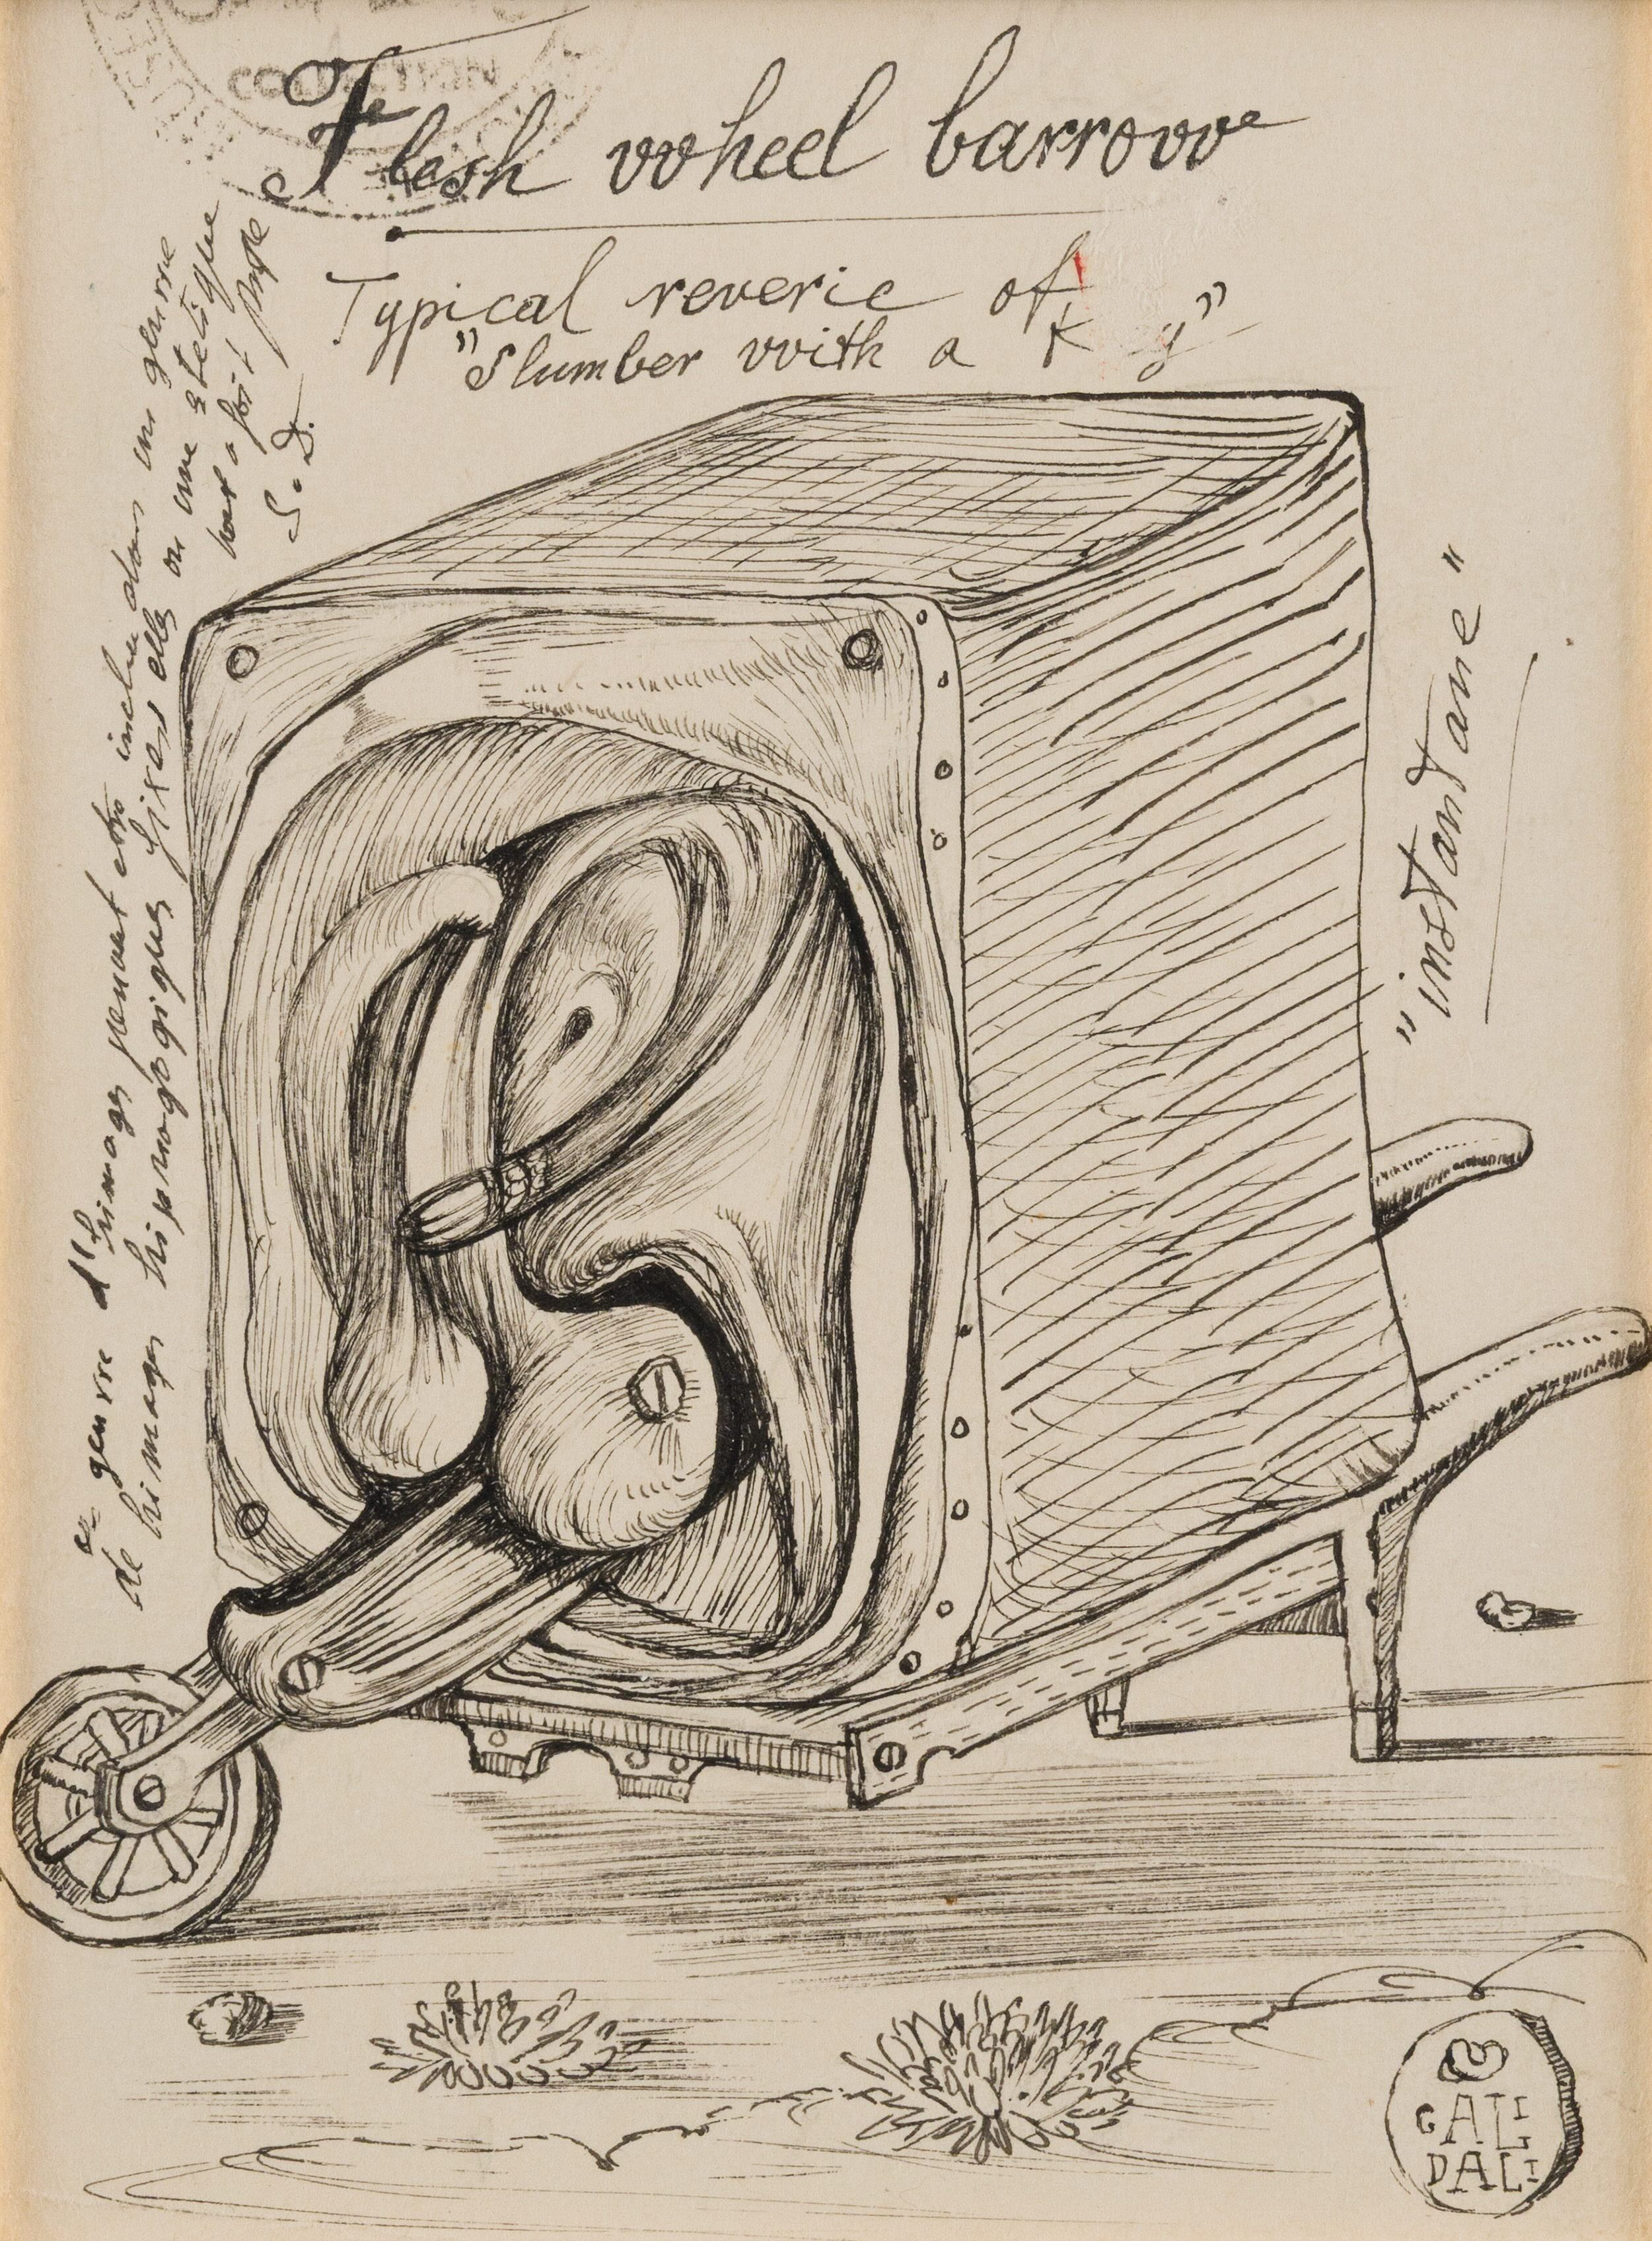 COLLECTION
Flesh wheel barrow
Typical reverie of
"Slumber with a K y"
Ce genre d'himages peuvent etre inclu dans un genrre
de himages hipnogogiques fixes elles on une stetique
tout a fait
S. D.
"instantane"
GALI
DALI